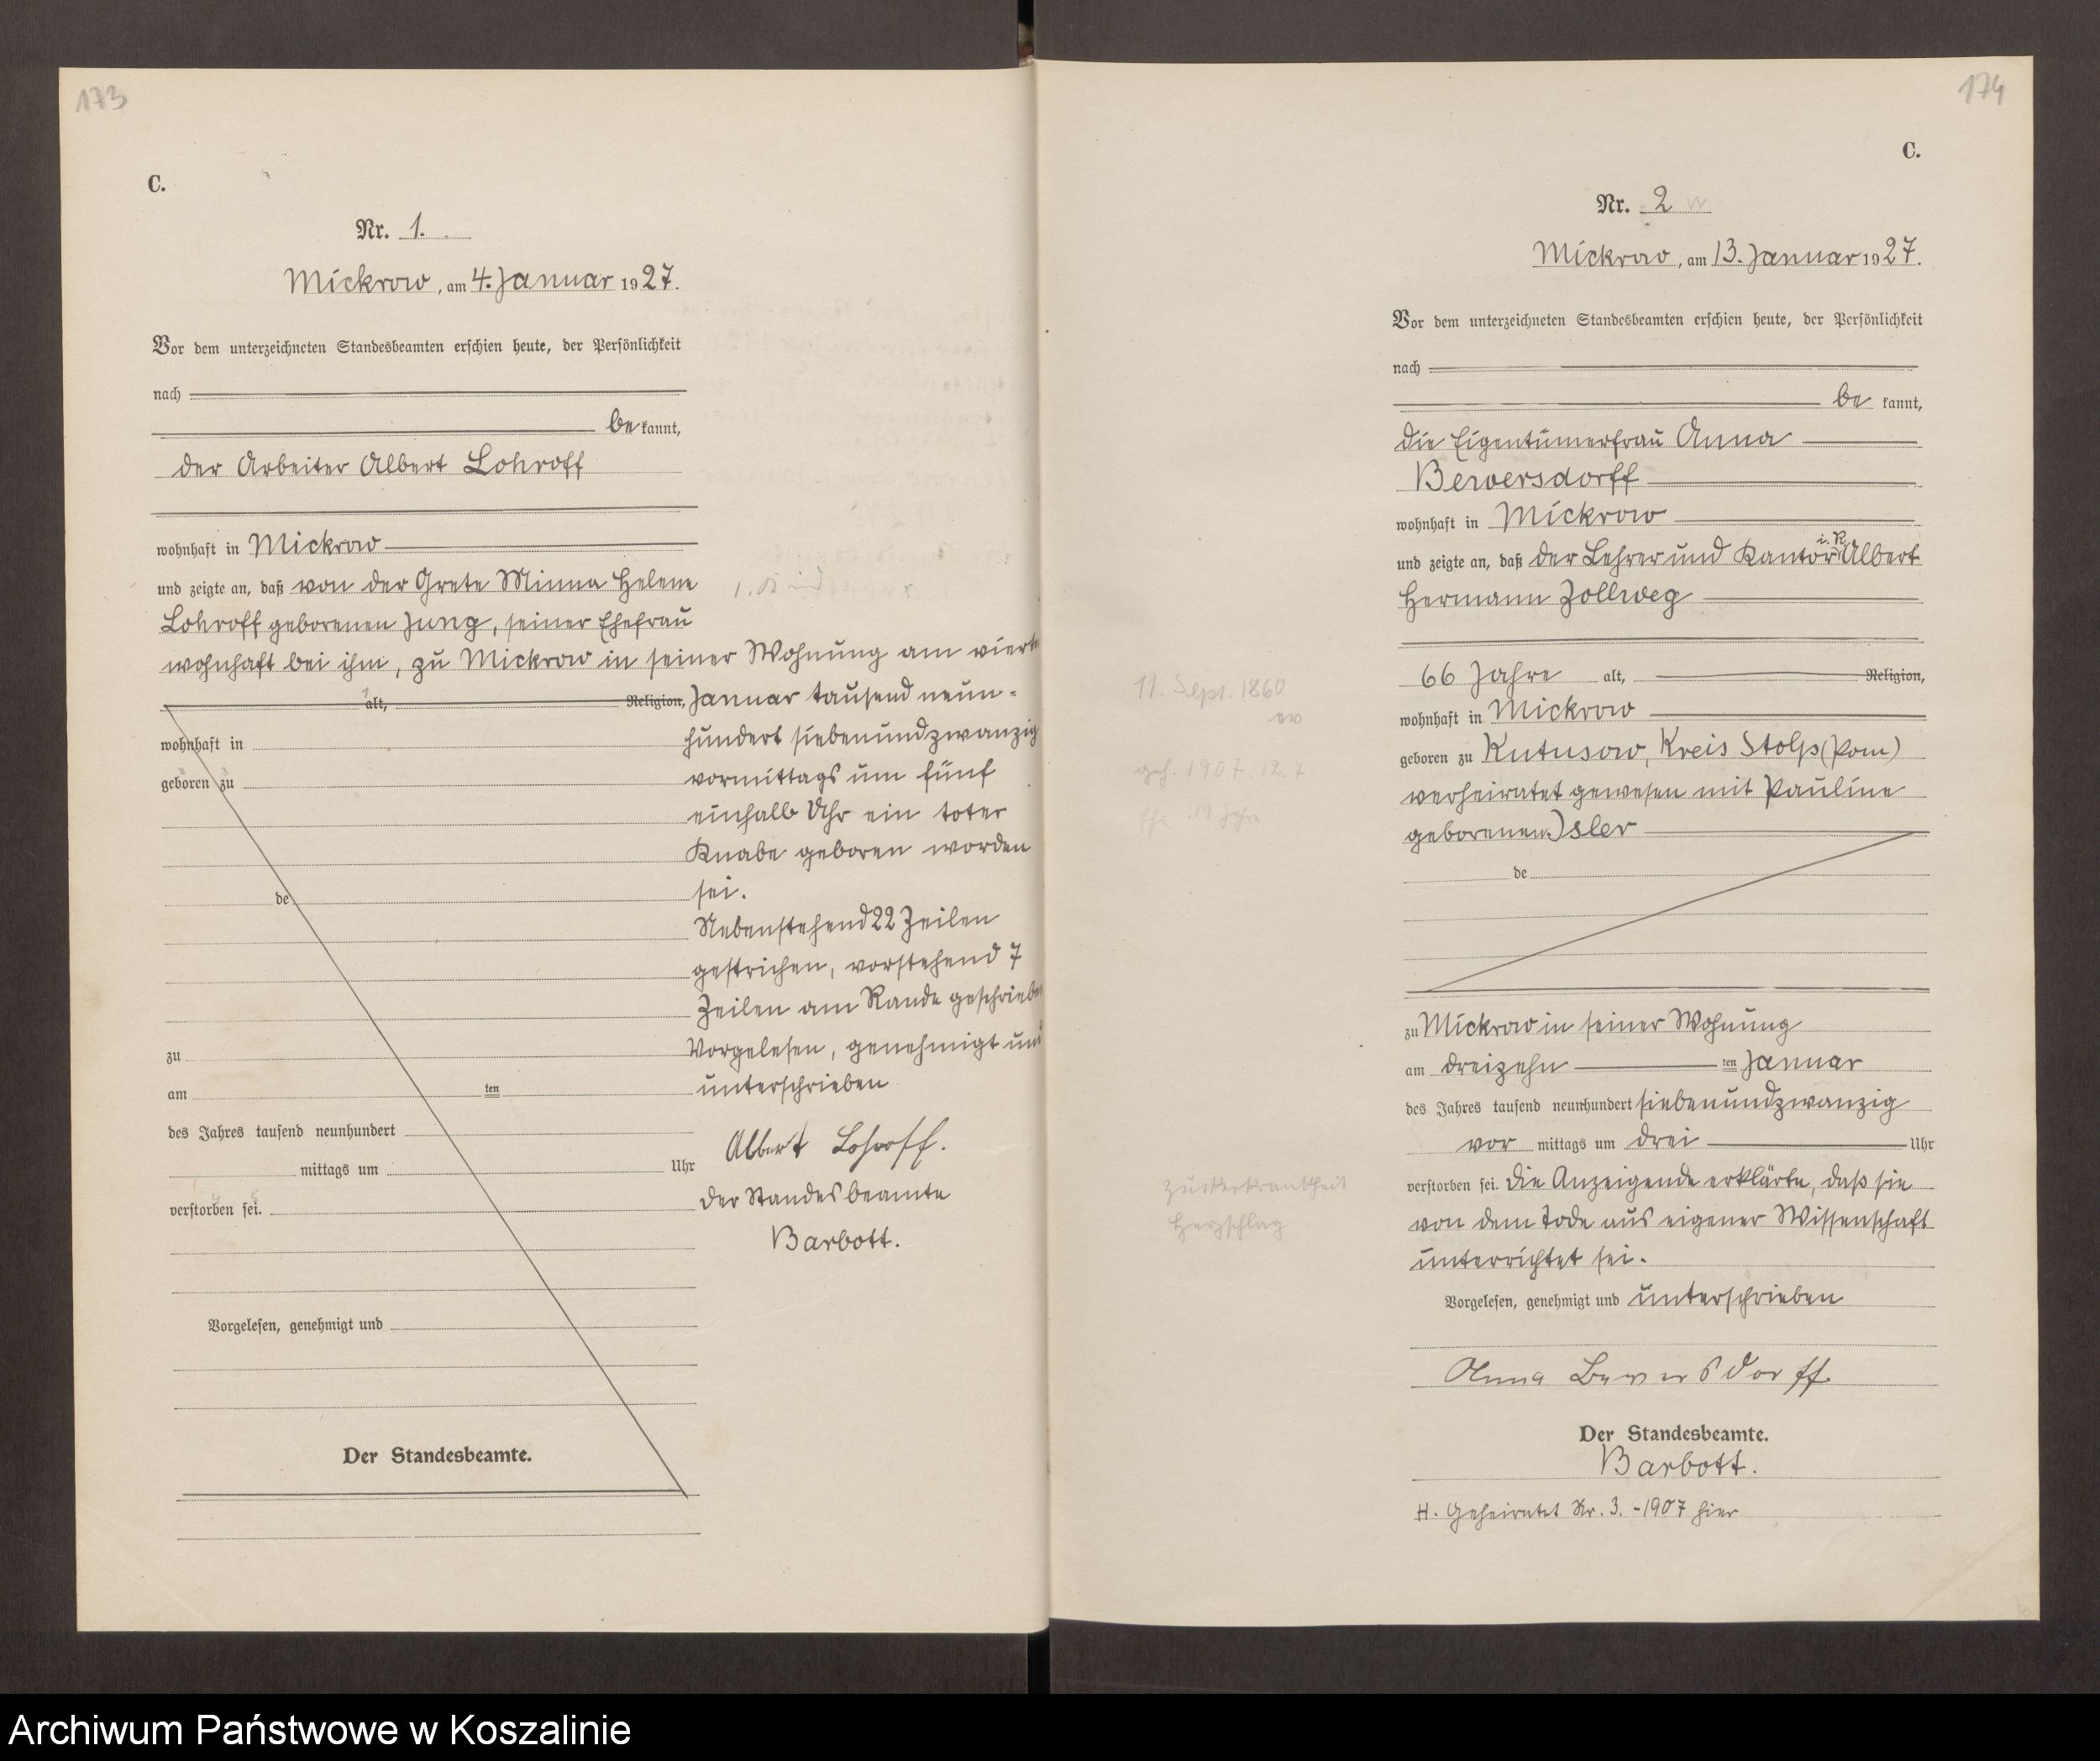 173
C.
Nr. 1.
Mickrow, am 4. Januar 1927.
Vor dem unterzeichneten Standesbeamten erschien heute, der Persönlichkeit
nach
be kannt,
der Arbeiter Albert Lohroff
wohnhaft in Mickrow
und zeigte an, daß von der Grete Minna Helene
Lohroff geborenen Jung, seiner Ehefrau
wohnhaft bei ihm, zu Mickrow in seiner Wohnung am vierten
alt, Religion, Januar tausend neun-
wohnhaft in hundert siebenundzwanzig
geboren zu vormittags um fünf
einhalb Uhr ein toter
Knabe geboren worden
de sei.
Nebenstehend 22 Zeilen
gestrichen, vorstehend 7
Zeilen am Rande geschrieben
zu Vorgelesen, genehmigt und
am ten unterschrieben
des Jahres tausend neunhundert
Albert Lohroff.
mittags um Uhr
der Standesbeamte
verstorben sei.
Barbott.
Vorgelesen, genehmigt und
Der Standesbeamte.
174
C.
Nr. 2
Mickrow, am 13. Januar 1927.
Vor dem unterzeichneten Standesbeamten erschien heute, der Persönlichkeit
nach
be kannt,
die Eigentümerfrau Anna
Bewersdorff
wohnhaft in Mickrow
und zeigte an, daß der Lehrer und Kantor i. R. Albert
Hermann Zollweg
66 Jahre alt, Religion,
wohnhaft in Mickrow
geboren zu Kutusow, Kreis Stolp (Pom)
verheiratet gewesen mit Pauline
geborenen
de
zu Mickrow in seiner Wohnung
am dreizehn ten Januar
des Jahres tausend neunhundert siebenundzwanzig
vor mittags um drei Uhr
verstorben sei. Die Anzeigende erklärte, daß sie
von dem Tode aus eigener Wissenschaft
unterrichtet sei.
Vorgelesen, genehmigt und unterschrieben
Anna Bewersdorff.
Der Standesbeamte.
Barbott.
H. Geheiratet Nr. 3. -1907 hier
11. Sept. 1860
geh. 1907 12. 7
19 Jahre
Zuckerkrankheit
Herzschlag
Archiwum Państwowe w Koszalinie